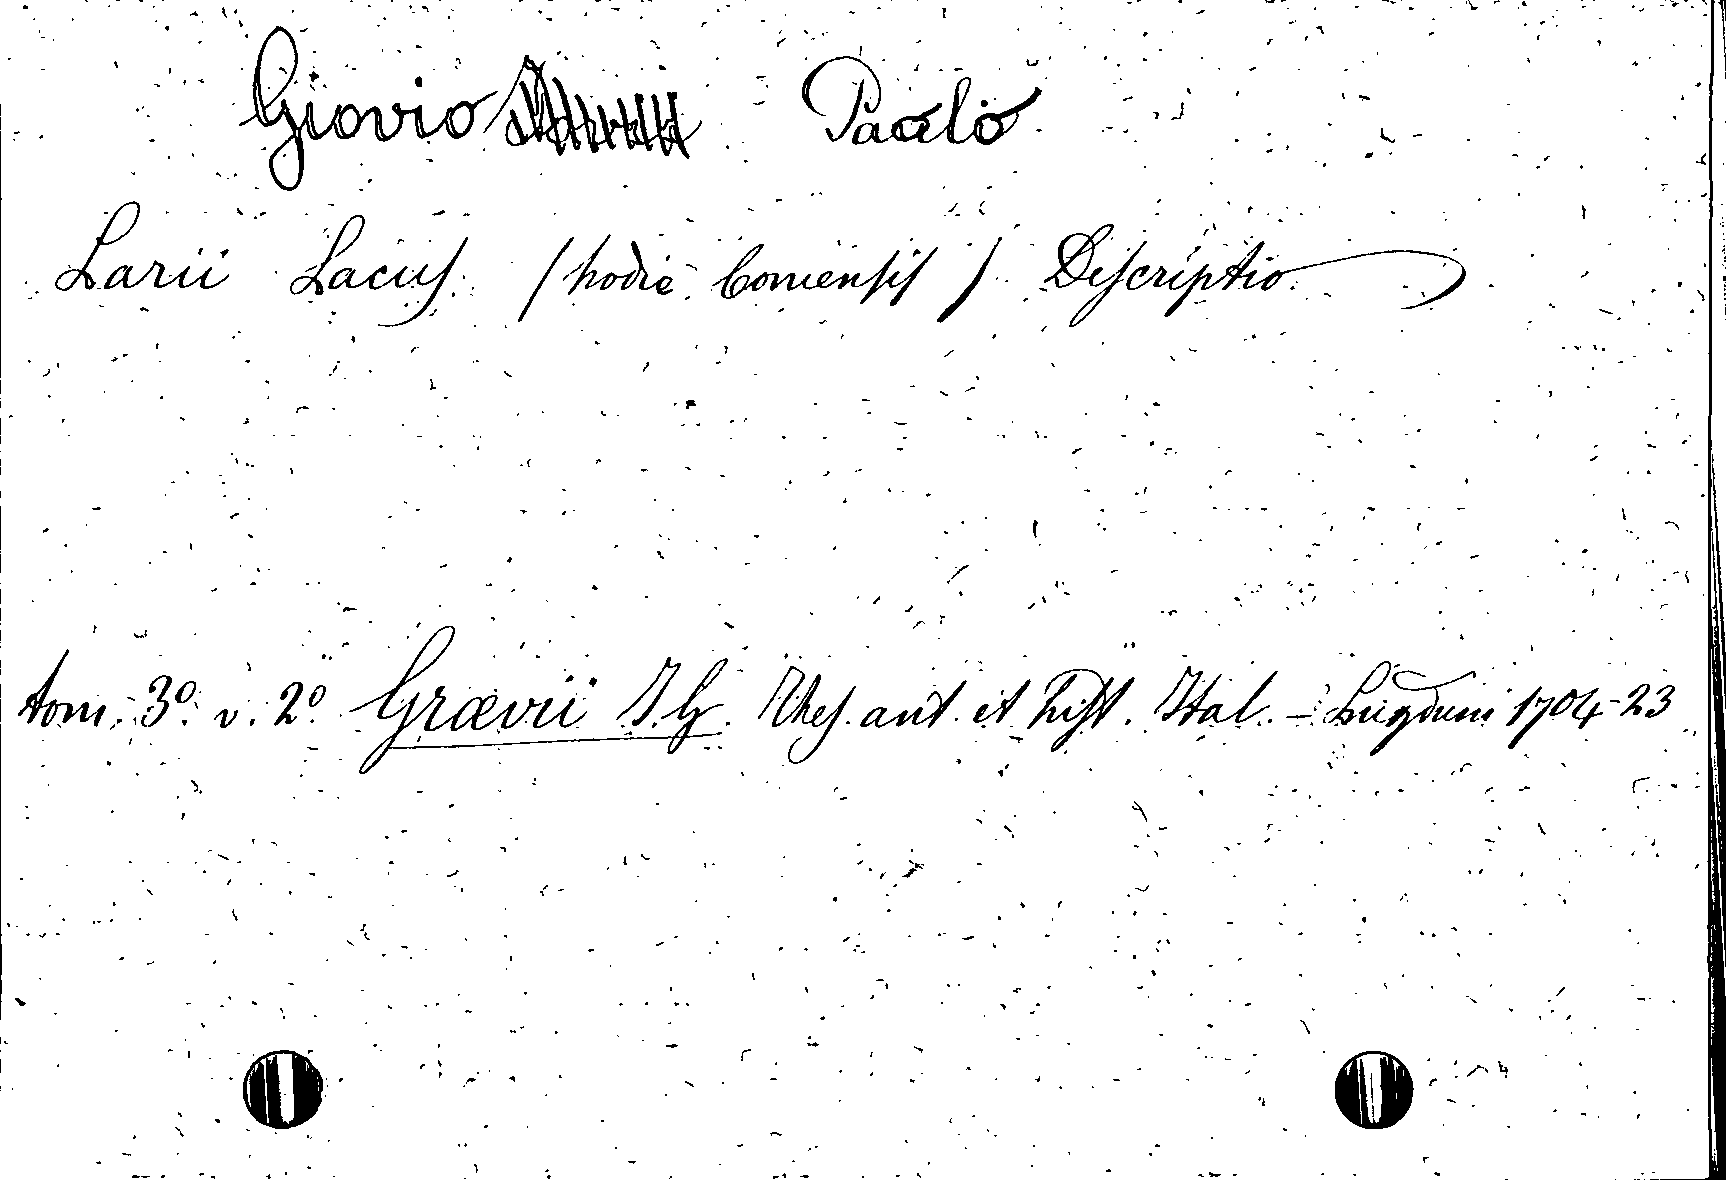 Giovio Paolo
Larii Lacus (hodie Comensis) Descriptio
tom. 3º v. 2º Grævii J. G. Thes. ant. et hist. Ital. - Lugduni 1704-23